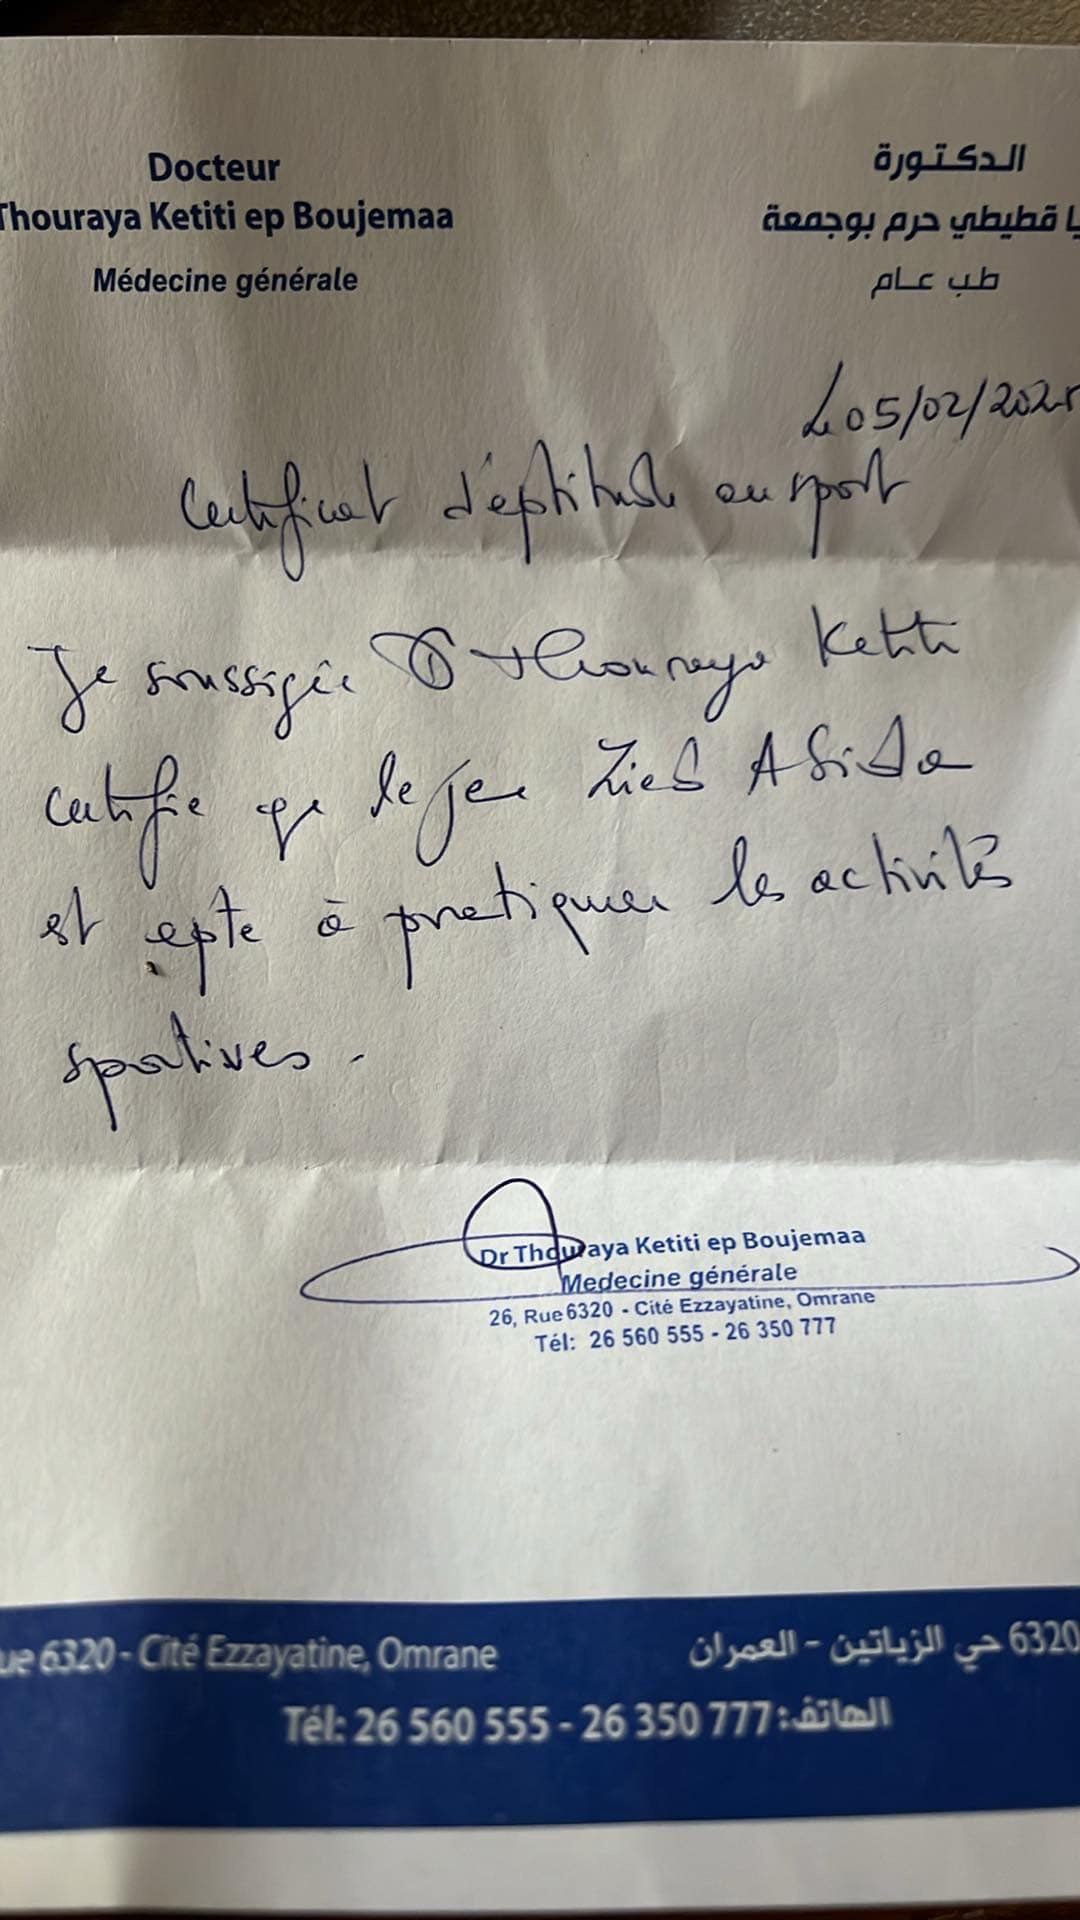 Docteur
Thouraya Ketiti ep Boujemaa
Médecine générale
الدكتورة
يا قطيطي حرم بوجمعة
طب عام
Le 05/02/202
Certificat d'aptitude au sport
Je soussignée Dr Thouraya Ketiti
certifie que le jeune Zied Abida
est apte à pratiquer les activités
sportives.
Dr Thouraya Ketiti ep Boujemaa
Medecine générale
26, Rue 6320 - Cité Ezzayatine, Omrane
Tél: 26 560 555 - 26 350 777
ue 6320 - Cité Ezzayatine, Omrane
6320 حي الزياتين - العمران
Tél: 26 560 555 - 26 350 777 :الهاتف